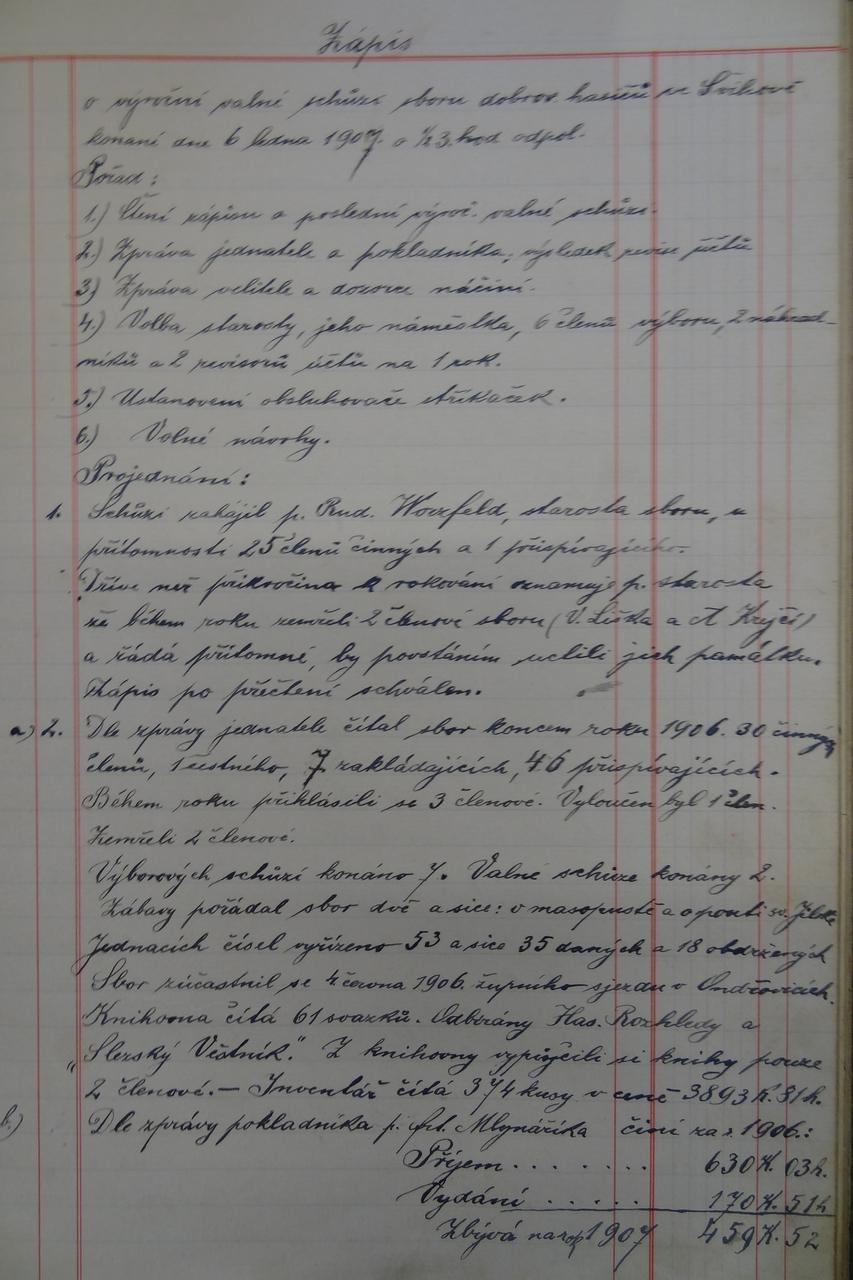 Zápis
o výroční valné schůzi sboru dobrov. hasičů ve
konané dne 6 ledna 1907. o ½3. hod odpol.
Pořad:
1.) Čtení zápisu o poslední výroč. valné schůzi.
2.) Zpráva jednatele a pokladníka; výsledek revise účtů
3) Zpráva velitele a dozorce náčiní.
4.) Volba starosty, jeho náměstka, 6 členů výboru, 2 náhrad-
níků a 2 revisorů účtů na 1 rok.
5.) Ustanovení obsluhovače stříkaček.
6.) Volné návrhy.
Projednání:
1. Schůzi zahájil p. Rud. starosta sboru, u
přítomnosti 25 členů činných a 1 přispívajícího.
Dříve než přikročeno k rokování oznamuje p. starosta
že během roku zemřeli 2 členové sboru (V. Liška a A Krejčí)
a žádá přítomné, by povstáním uctili jich památku.
Zápis po přečtení schválen.
a) 2. Dle zprávy jednatele čítal sbor koncem roku 1906. 30 činných
členů, 1 čestného, 7 zakládajících, 46 přispívajících.
Během roku přihlásili se 3 členové. Vyloučen byl 1 člen.
Zemřeli 2 členové.
Výborových schůzí konáno 7. Valné schůze konány 2.
Zábavy pořádal sbor dvě a sice: v masopustě a o pouti sv. Jilke
Jednacích čísel vyřízeno 53 a sice 35 daných a 18 obdržených
Sbor zúčastnil se 4 června 1906. župního sjezdu v
Knihovna čítá 61 svazků. Odbírány Has. Rozhledy a
„Slezský Věstník." Z knihovny vypůjčili si knihy pouze
2 členové. — Inventář čítá 374 kusy v ceně 3893 K. 81 h.
b.) Dle zprávy pokladníka p. Mlynáříka činí za r. 1906.:
Příjem . . . . . . . . 630 K. 03 h.
Vydání . . . . . 170 K. 51 h
Zbývá na rok 1907 459 K. 52